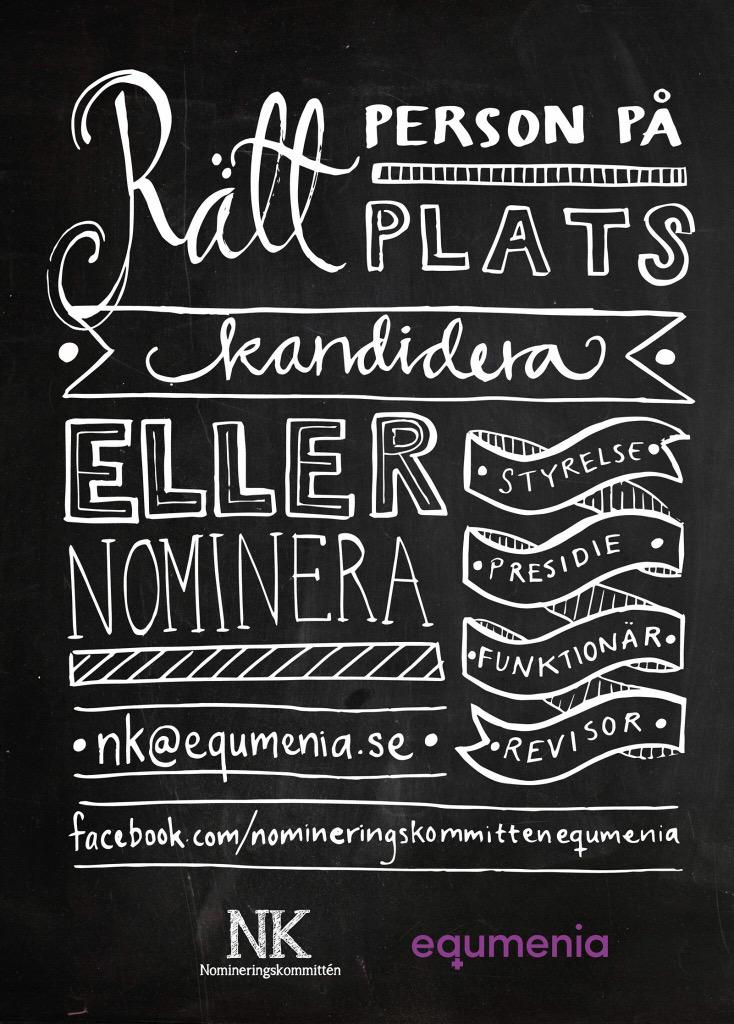 Rätt PERSON PÅ
PLATS
kandidera
ELLER
NOMINERA
STYRELSE
PRESIDIE
FUNKTIONÄR
REVISOR
nk@equmenia.se
facebook.com/nomineringskommittenequmenia
NK
Nomineringskommittén
equmenia